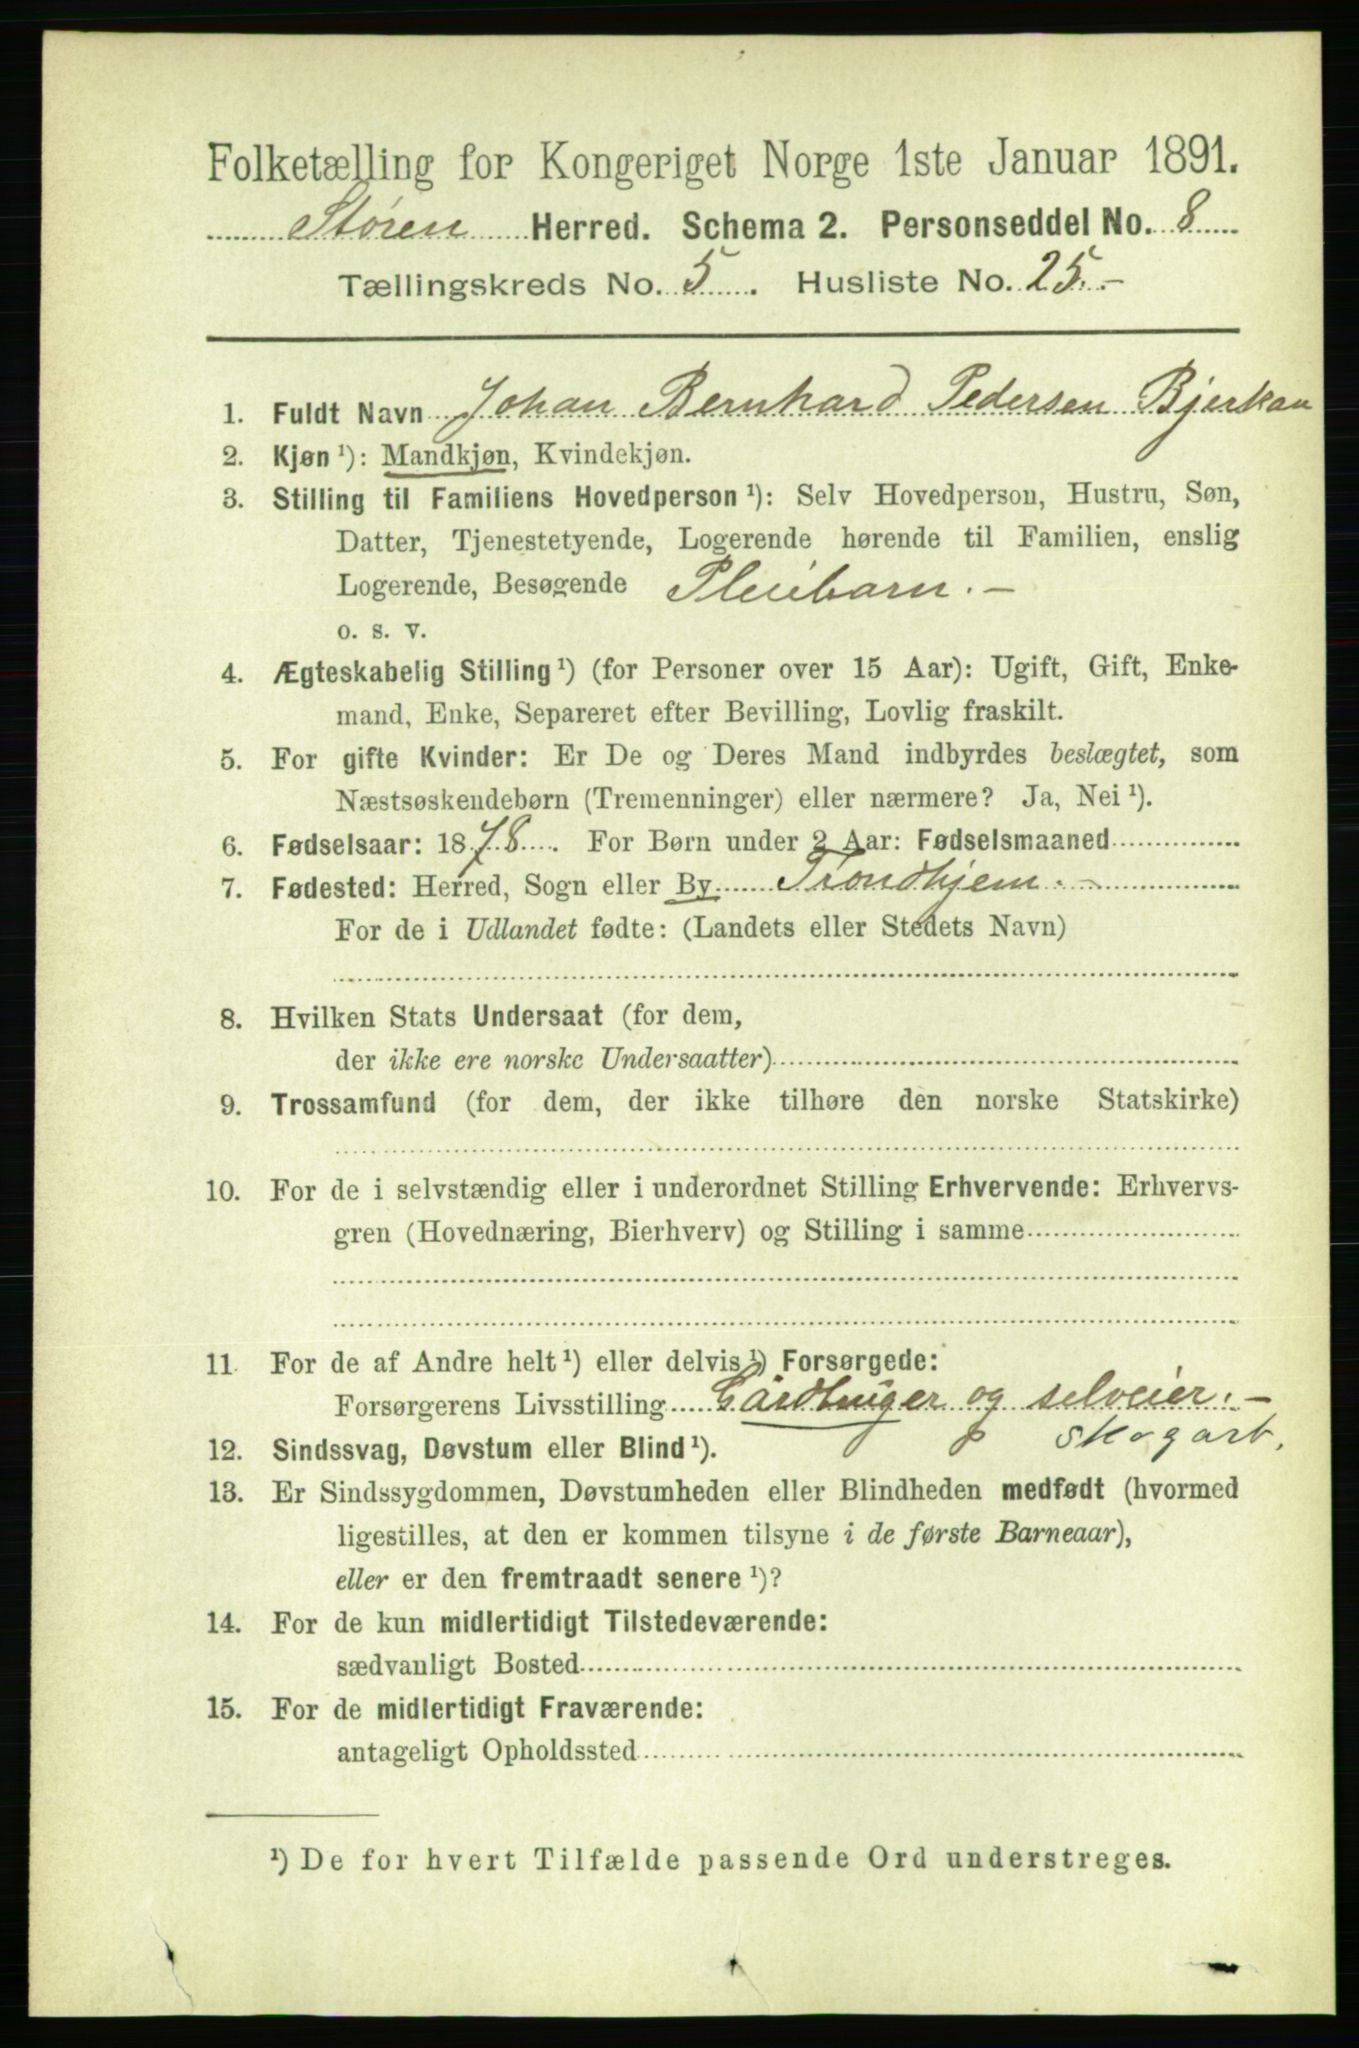 Folketælling for Kongeriget Norge 1ste Januar 1891.
Støren Herred. Schema 2. Personseddel No. 8
Tællingskreds No. 5. Husliste No. 25.-
1. Fuldt Navn Johan Bernhard Pedersen Bjerkan
2. Kjøn ¹): Mandkjøn, Kvindekjøn.
3. Stilling til Familiens Hovedperson ¹): Selv Hovedperson, Hustru, Søn,
Datter, Tjenestetyende, Logerende hørende til Familien, enslig
Logerende, Besøgende Pleiebarn.-
o. s. v.
4. Ægteskabelig Stilling ¹) (for Personer over 15 Aar): Ugift, Gift, Enke-
mand, Enke, Separeret efter Bevilling, Lovlig fraskilt.
5. For gifte Kvinder: Er De og Deres Mand indbyrdes beslægtet, som
Næstsøskendebørn (Tremenninger) eller nærmere? Ja, Nei ¹).
6. Fødselsaar: 1878. For Børn under 2 Aar: Fødselsmaaned
7. Fødested: Herred, Sogn eller By Trondhjem.-
For de i Udlandet fødte: (Landets eller Stedets Navn)
8. Hvilken Stats Undersaat (for dem,
der ikke ere norske Undersaatter)
9. Trossamfund (for dem, der ikke tilhøre den norske Statskirke)
10. For de i selvstændig eller i underordnet Stilling Erhvervende: Erhvervs-
gren (Hovednæring, Bierhverv) og Stilling i samme
11. For de af Andre helt ¹) eller delvis ¹) Forsørgede:
Forsørgerens Livsstilling Gårdbruger og selveier.-
skogarb.
12. Sindssvag, Døvstum eller Blind ¹).
13. Er Sindssygdommen, Døvstumheden eller Blindheden medfødt (hvormed
ligestilles, at den er kommen tilsyne i de første Barneaar),
eller er den fremtraadt senere ¹)?
14. For de kun midlertidigt Tilstedeværende:
sædvanligt Bosted
15. For de midlertidigt Fraværende:
antageligt Opholdssted
¹) De for hvert Tilfælde passende Ord understreges.